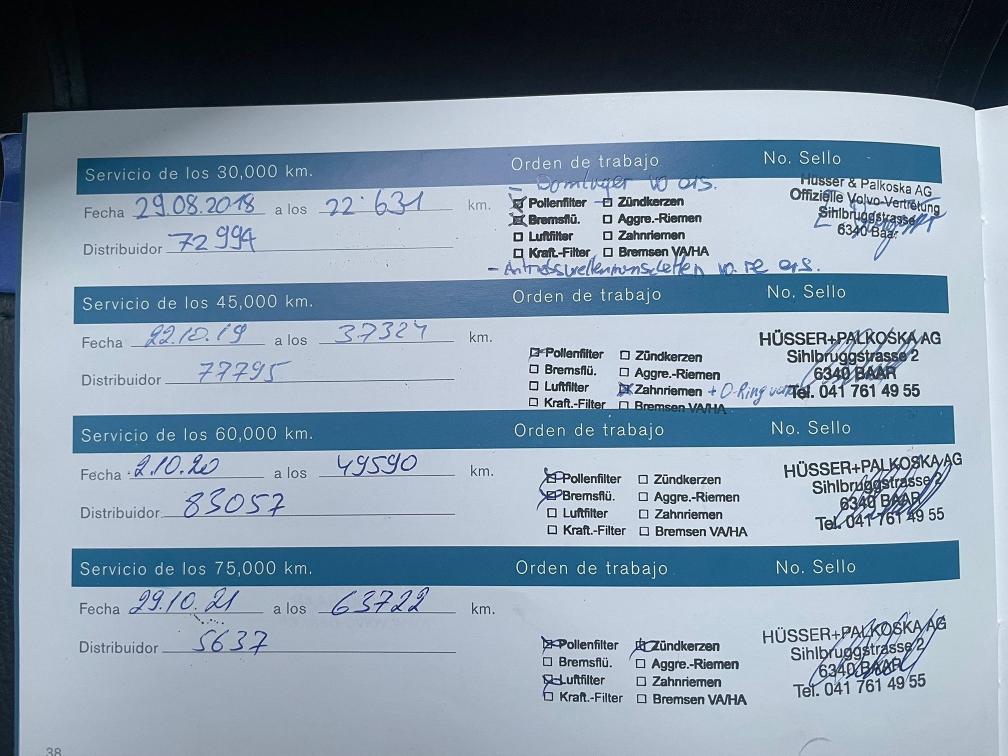 Servicio de los 30,000 km. Orden de trabajo No. Sello
- Domlager vo ers.
Fecha 29.08.2018 a los 22'631 km.
Distribuidor 72994
Pollenfilter Zündkerzen
Bremsflü. Aggre.-Riemen
Luftfilter Zahnriemen
Kraft.-Filter Bremsen VA/HA
- Antriebswellenmanschetten vo. re ers.
Hüsser & Palkoska AG
Offizielle Volvo-Vertretung
Sihlbruggstrasse
6340 Baar
Servicio de los 45,000 km. Orden de trabajo No. Sello
Fecha 22.10.19 a los 37324 km.
Distribuidor 77795
Pollenfilter Zündkerzen
Bremsflü. Aggre.-Riemen
Luftfilter Zahnriemen + O-Ring
Kraft.-Filter Bremsen VA/HA
HÜSSER+PALKOSKA AG
Sihlbruggstrasse 2
6340 BAAR
Tel. 041 761 49 55
Servicio de los 60,000 km. Orden de trabajo No. Sello
Fecha 2.10.20 a los 49590 km.
Distribuidor 83057
Pollenfilter Zündkerzen
Bremsflü. Aggre.-Riemen
Luftfilter Zahnriemen
Kraft.-Filter Bremsen VA/HA
HÜSSER+PALKOSKA AG
Sihlbruggstrasse 2
6340 BAAR
Tel. 041 761 49 55
Servicio de los 75,000 km. Orden de trabajo No. Sello
Fecha 29.10.21 a los 63722 km.
Distribuidor 5637
Pollenfilter Zündkerzen
Bremsflü. Aggre.-Riemen
Luftfilter Zahnriemen
Kraft.-Filter Bremsen VA/HA
HÜSSER+PALKOSKA AG
Sihlbruggstrasse 2
6340 BAAR
Tel. 041 761 49 55
38